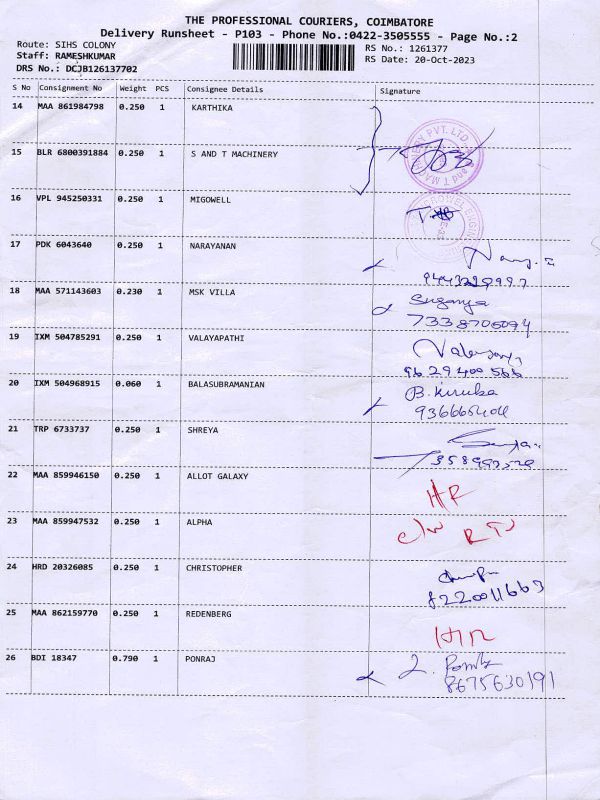 THE PROFESSIONAL COURIERS, COIMBATORE
Delivery Runsheet - P103 - Phone No.:0422-3505555 - Page No.:2
Route: SIHS COLONY
Staff: RAMESHKUMAR
DRS No.: DCJB126137702
RS No.: 1261377
RS Date: 20-Oct-2023
S No Consignment No Weight PCS Consignee Details Signature
14 MAA 861984798 0.250 1 KARTHIKA
15 BLR 6800391884 0.250 1 S AND T MACHINERY
16 VPL 945250331 0.250 1 MIGOWELL
17 PDK 6043640 0.250 1 NARAYANAN
18 MAA 571143603 0.230 1 MSK VILLA Suganya
7338706094
19 IXM 504785291 0.250 1 VALAYAPATHI
9629400566
20 IXM 504968915 0.060 1 BALASUBRAMANIAN B. Kiruba
936665404
21 TRP 6733737 0.250 1 SHREYA
22 MAA 859946150 0.250 1 ALLOT GALAXY
23 MAA 859947532 0.250 1 ALPHA
24 HRD 20326085 0.250 1 CHRISTOPHER
8220011663
25 MAA 862159770 0.250 1 REDENBERG
26 BDI 18347 0.790 1 PONRAJ
8675630191